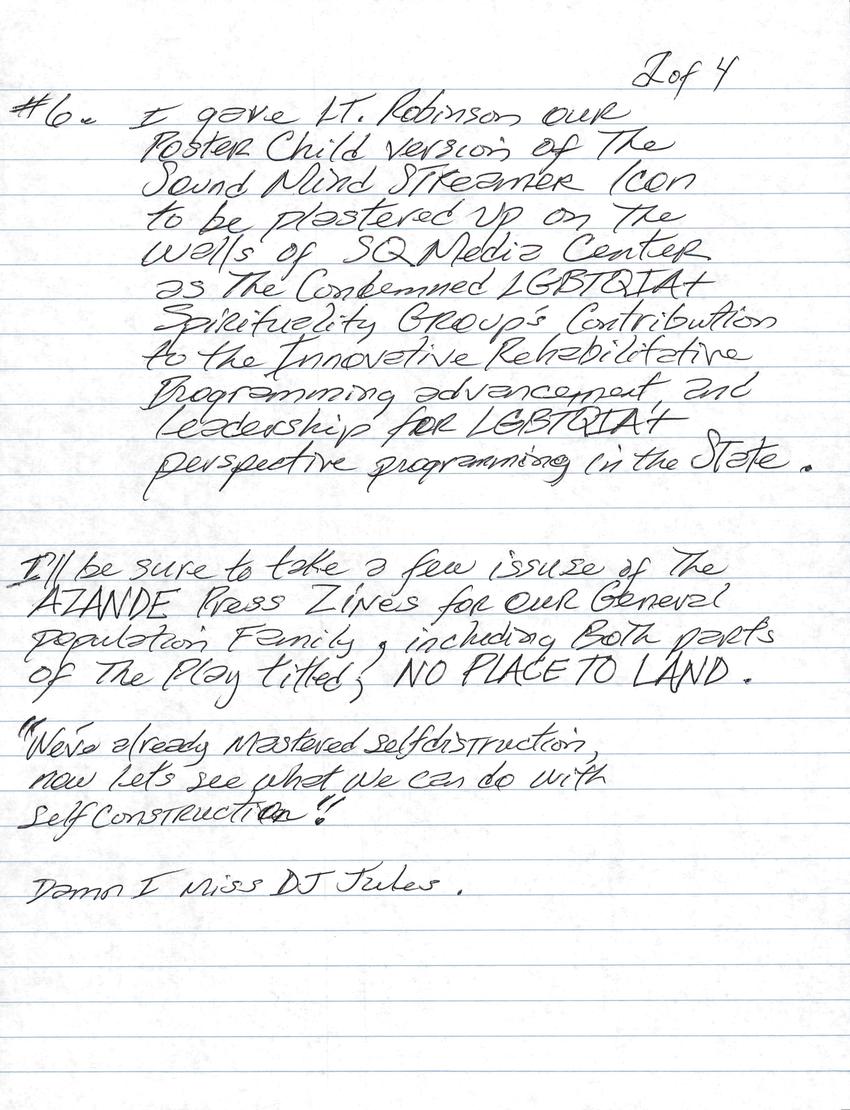 2 of 4
#6. I gave LT. Robinson our
Poster Child version of The
Sound Mind Streamer Icon
to be plastered up on The
walls of SQ Media Center
as The Condemned LGBTQIA+
Spirituality Group's Contribution
to the Innovative Rehabilitative
Programming advancement, and
leadership for LGBTQIA+
perspective programming in the State.
I'll be sure to take a few issuse of The
AZANDE Press Zines for our General
population Family, including Both parts
of The Play titled; NO PLACE TO LAND.
"We've already Mastered selfdistruction,
now let's see what we can do with
self construction."
Damn I Miss DJ Jules.